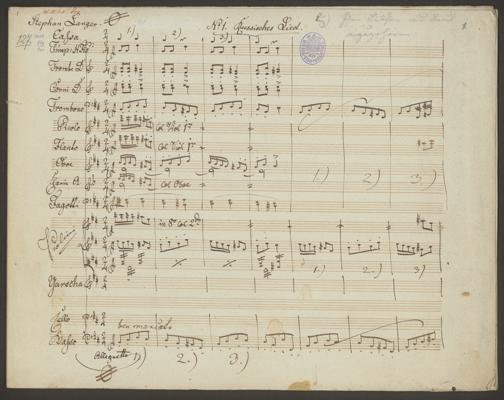 Stephan Langer
No 1. Russisches Lied.
1.) 2.) 3.)
Cassa
Timp. A D
Trombi D
Corni D
Trombone
Picolo
Col Viol 1mo
Flauto
Col Viol 1mo
Oboe
1.) 2.) 3.)
Clarin A
Col Oboe
Fagotti
in 8va Col 2do
Violini
1.) 2.) 3.)
Garocha
Cello
ben marcato
Basso
Allegretto 1) 2.) 3.)